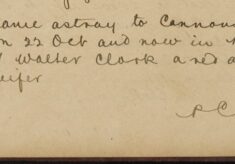 came astray to Cannons
22 Oct and now in
Walter Clark and a
eifer